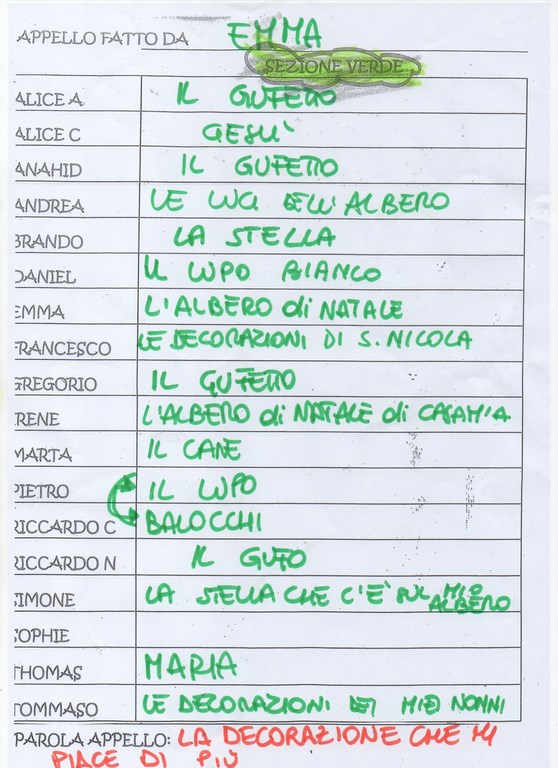 APPELLO FATTO DA EMMA
SEZIONE VERDE
ALICE A IL GUFETTO
ALICE C GESU'
ANAHID IL GUFETTO
ANDREA LE LUCI DELL'ALBERO
BRANDO LA STELLA
DANIEL IL LUPO BIANCO
EMMA L'ALBERO di NATALE
FRANCESCO LE DECORAZIONI DI S. NICOLA
GREGORIO IL GUFETTO
IRENE L'ALBERO di NATALE di CASA MIA
MARTA IL CANE
PIETRO IL LUPO
RICCARDO C BALOCCHI
RICCARDO N IL GUFO
SIMONE LA STELLA CHE C'E' SUL MIO ALBERO
SOPHIE
THOMAS MARIA
TOMMASO LE DECORAZIONI DEI MIEI NONNI
PAROLA APPELLO: LA DECORAZIONE CHE MI
PIACE DI PIÙ